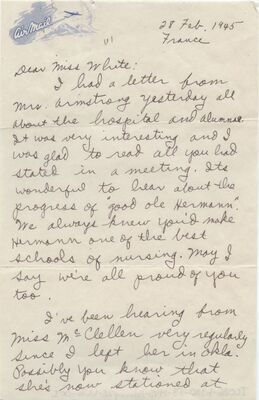 Air Mail
28 Feb. 1945
France
Dear Miss White:
I had a letter from
Mrs. Armstrong yesterday all
about the hospital and alumnae.
It was very interesting and I
was glad to read all you had
stated in a meeting. Its
wonderful to hear about the
progress of "good ole Hermann".
We always knew you'd make
Hermann one of the best
schools of nursing. May I
say we're all proud of you
too.
I've been hearing from
Miss McClellen very regularly
since I left her in Okla.
Possibly you know that
she's now stationed at